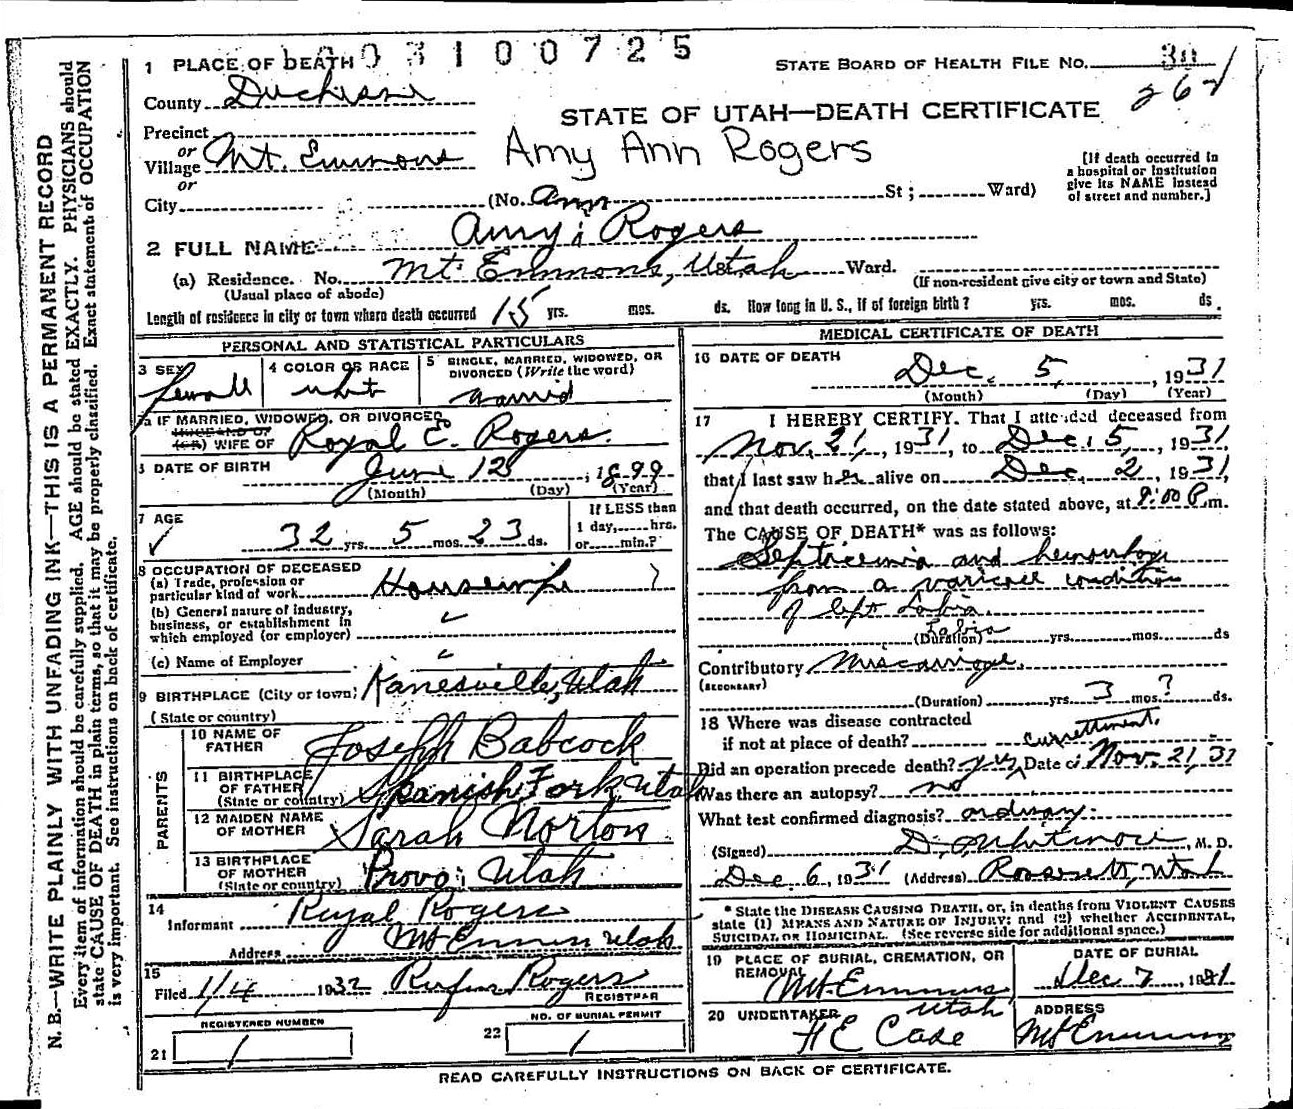 003100725
1 PLACE OF DEATH
STATE BOARD OF HEALTH FILE NO. 30
262
County Duchesne
STATE OF UTAH—DEATH CERTIFICATE
Precinct
or
Village Mt. Emmons
Amy Ann Rogers
[If death occurred in
a hospital or institution
give its NAME instead
of street and number.]
or
City (No. St; Ward)
Ann
2 FULL NAME Amy Rogers
(a) Residence. No. Mt. Emmons, Utah Ward.
(Usual place of abode)
(If non-resident give city or town and State)
Length of residence in city or town where death occurred 15 yrs. mos. ds. How long in U. S., if of foreign birth? yrs. mos. ds.
PERSONAL AND STATISTICAL PARTICULARS
3 SEX
Female
4 COLOR OR RACE
whit
5 SINGLE, MARRIED, WIDOWED, OR
DIVORCED (Write the word)
married
5a IF MARRIED, WIDOWED, OR DIVORCED
HUSBAND OF
(OR) WIFE OF Royal E. Rogers.
6 DATE OF BIRTH June 12, 1899
(Month) (Day) (Year)
7 AGE
32 yrs. 5 mos. 23 ds.
If LESS than
1 day, hrs.
or min.?
8 OCCUPATION OF DECEASED
(a) Trade, profession or
particular kind of work Housewife
(b) General nature of industry,
business, or establishment in
which employed (or employer)
(c) Name of Employer
9 BIRTHPLACE (City or town) Kanesville, Utah
(State or country)
PARENTS
10 NAME OF
FATHER Joseph Babcock
11 BIRTHPLACE
OF FATHER
(State or country) Spanish Fork, Utah
12 MAIDEN NAME
OF MOTHER Sarah Norton
13 BIRTHPLACE
OF MOTHER
(State or country) Provo, Utah
14
Informant Royal Rogers
Address Mt Emmons Utah
15
Filed 1/4 1932 Rufus Rogers
REGISTRAR
REGISTERED NUMBER
21 1
NO. OF BURIAL PERMIT
22 1
MEDICAL CERTIFICATE OF DEATH
16 DATE OF DEATH
Dec. 5, 1931
(Month) (Day) (Year)
17 I HEREBY CERTIFY. That I attended deceased from
Nov. 21, 1931, to Dec. 5, 1931,
that I last saw her alive on Dec. 2, 1931,
and that death occurred, on the date stated above, at 9:00 P.m.
The CAUSE OF DEATH* was as follows:
Septicemia and hemorrhage
from a varicose condition
of left Labia.
Labia
(Duration) yrs. mos. ds
Contributory Miscarriage.
(SECONDARY)
(Duration) yrs. 3 mos.? ds.
18 Where was disease contracted
if not at place of death?
currettment.
Did an operation precede death? yes Date of Nov. 21, 31
Was there an autopsy? no
What test confirmed diagnosis? ordinary.
(Signed) D. Whitmore, M. D.
Dec 6, 1931 (Address) Roosevelt, Utah
* State the DISEASE CAUSING DEATH, or, in deaths from VIOLENT CAUSES
state (1) MEANS AND NATURE OF INJURY; and (2) whether ACCIDENTAL,
SUICIDAL OR HOMICIDAL. (See reverse side for additional space.)
19 PLACE OF BURIAL, CREMATION, OR
REMOVAL
Mt. Emmons
Utah
DATE OF BURIAL
Dec 7, 1931
20 UNDERTAKER
H E Case
ADDRESS
Mt Emmons
READ CAREFULLY INSTRUCTIONS ON BACK OF CERTIFICATE.
N. B.—WRITE PLAINLY WITH UNFADING INK—THIS IS A PERMANENT RECORD
Every item of information should be carefully supplied. AGE should be stated EXACTLY. PHYSICIANS should
state CAUSE OF DEATH in plain terms, so that it may be properly classified. Exact statement of OCCUPATION
is very important. See instructions on back of certificate.